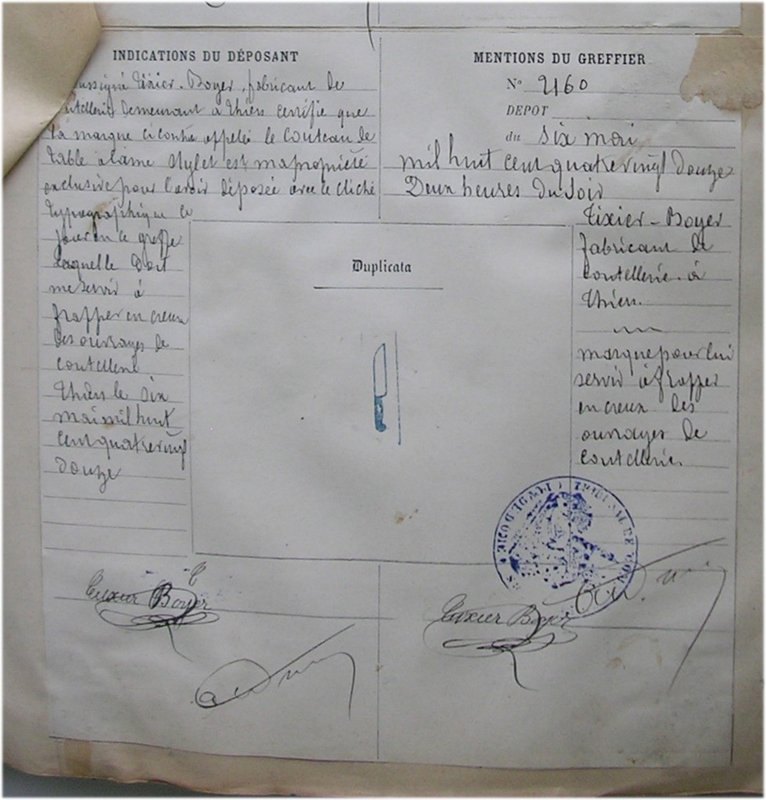 INDICATIONS DU DÉPOSANT
soussigné Tixier-Boyer, fabricant de
coutellerie demeurant à Thiers certifie que
la marque ci contre appelée le couteau de
table à lame stylet est ma propriété
exclusive pour l'avoir déposée avec le cliché
typographique ce
jour en ce greffe
laquelle doit
me servir à
frapper en creux
des ouvrages de
coutellerie
Thiers le six
mai mil huit
cent quatre vingt
douze
Tixier Boyer
MENTIONS DU GREFFIER
No 2160
DEPOT
du six mai
mil huit cent quatre vingt douze
Deux heures du soir
Tixier-Boyer
fabricant de
coutellerie à
Thiers
marque pour lui
servir à frapper
en creux des
ouvrages de
coutellerie
Duplicata
Tixier Boyer
TRIBUNAL DE